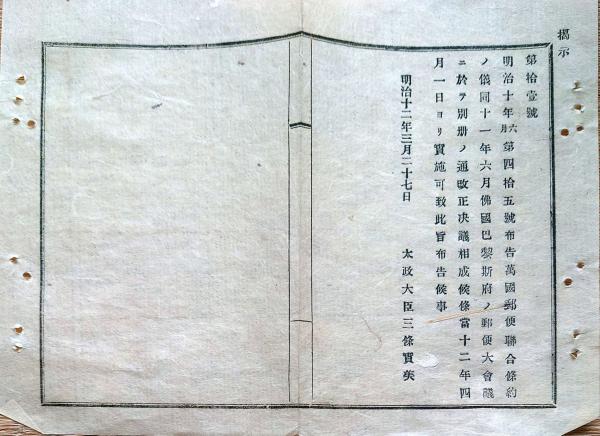 揭示
第拾壹號
明治十年六月第四拾五號布告萬國郵便聯合條約
ノ儀同十一年六月佛國巴黎斯府ノ郵便大會議
ニ於テ別册ノ通改正决議相成候條當十二年四
月一日ヨリ實施可致此旨布告候事
明治十二年三月二十七日
太政大臣三條實美